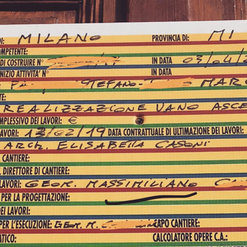 MILANO PROVINCIA DI: MI
COMPETENTE:
DI COSTRUIRE N° IN DATA 03/04/2
INIZIO ATTIVITA' IN DATA
STEFANO MAR
REALIZZAZIONE VANO ASCE
MPLESSIVO DEI LAVORI: €
LAVORI: 12/02/19 DATA CONTRATTUALE DI ULTIMAZIONE DEI LAVORI
ARCH. ELISABETTA CASONI
CANTIERE:
DIRETTORE DI CANTIERE:
LAVORI: GEOM. MASSIMILIANO C
PER LA PROGETTAZIONE:
DEI LAVORI:
PER L'ESECUZIONE: GEOM. M. CAPO CANTIERE:
ATICO: CALCOLATORE OPERE C.A.: